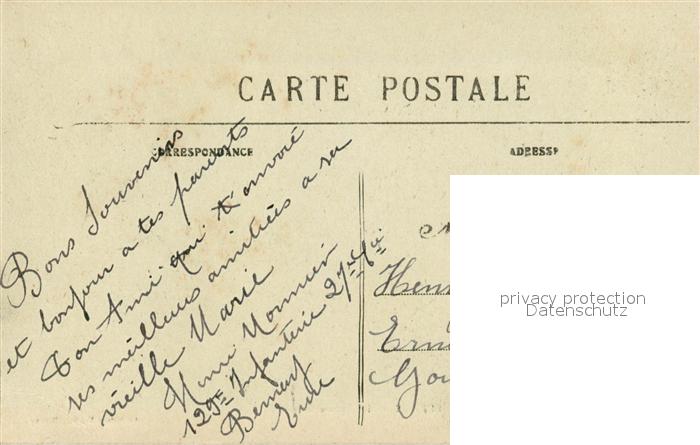 CARTE POSTALE
CORRESPONDANCE
ADRESSE
Bons Souvenirs
et bonjour a tes parents
Ton Ami qui t'envoié
ses meilleurs amitiées a sa
vieille Marie
Henri Monnier
129e Infanterie 27e Cie
Bernay
Eure
Henr
Ern
Gou
privacy protection
Datenschutz